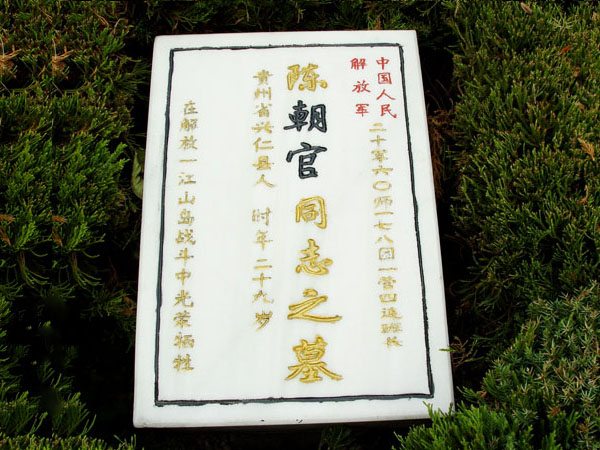 中国人民
解放军
二十军六〇师一七八团一营四连班长
陈朝官同志之墓
贵州省兴仁县人 时年二十九岁
在解放一江山岛战斗中光荣牺牲